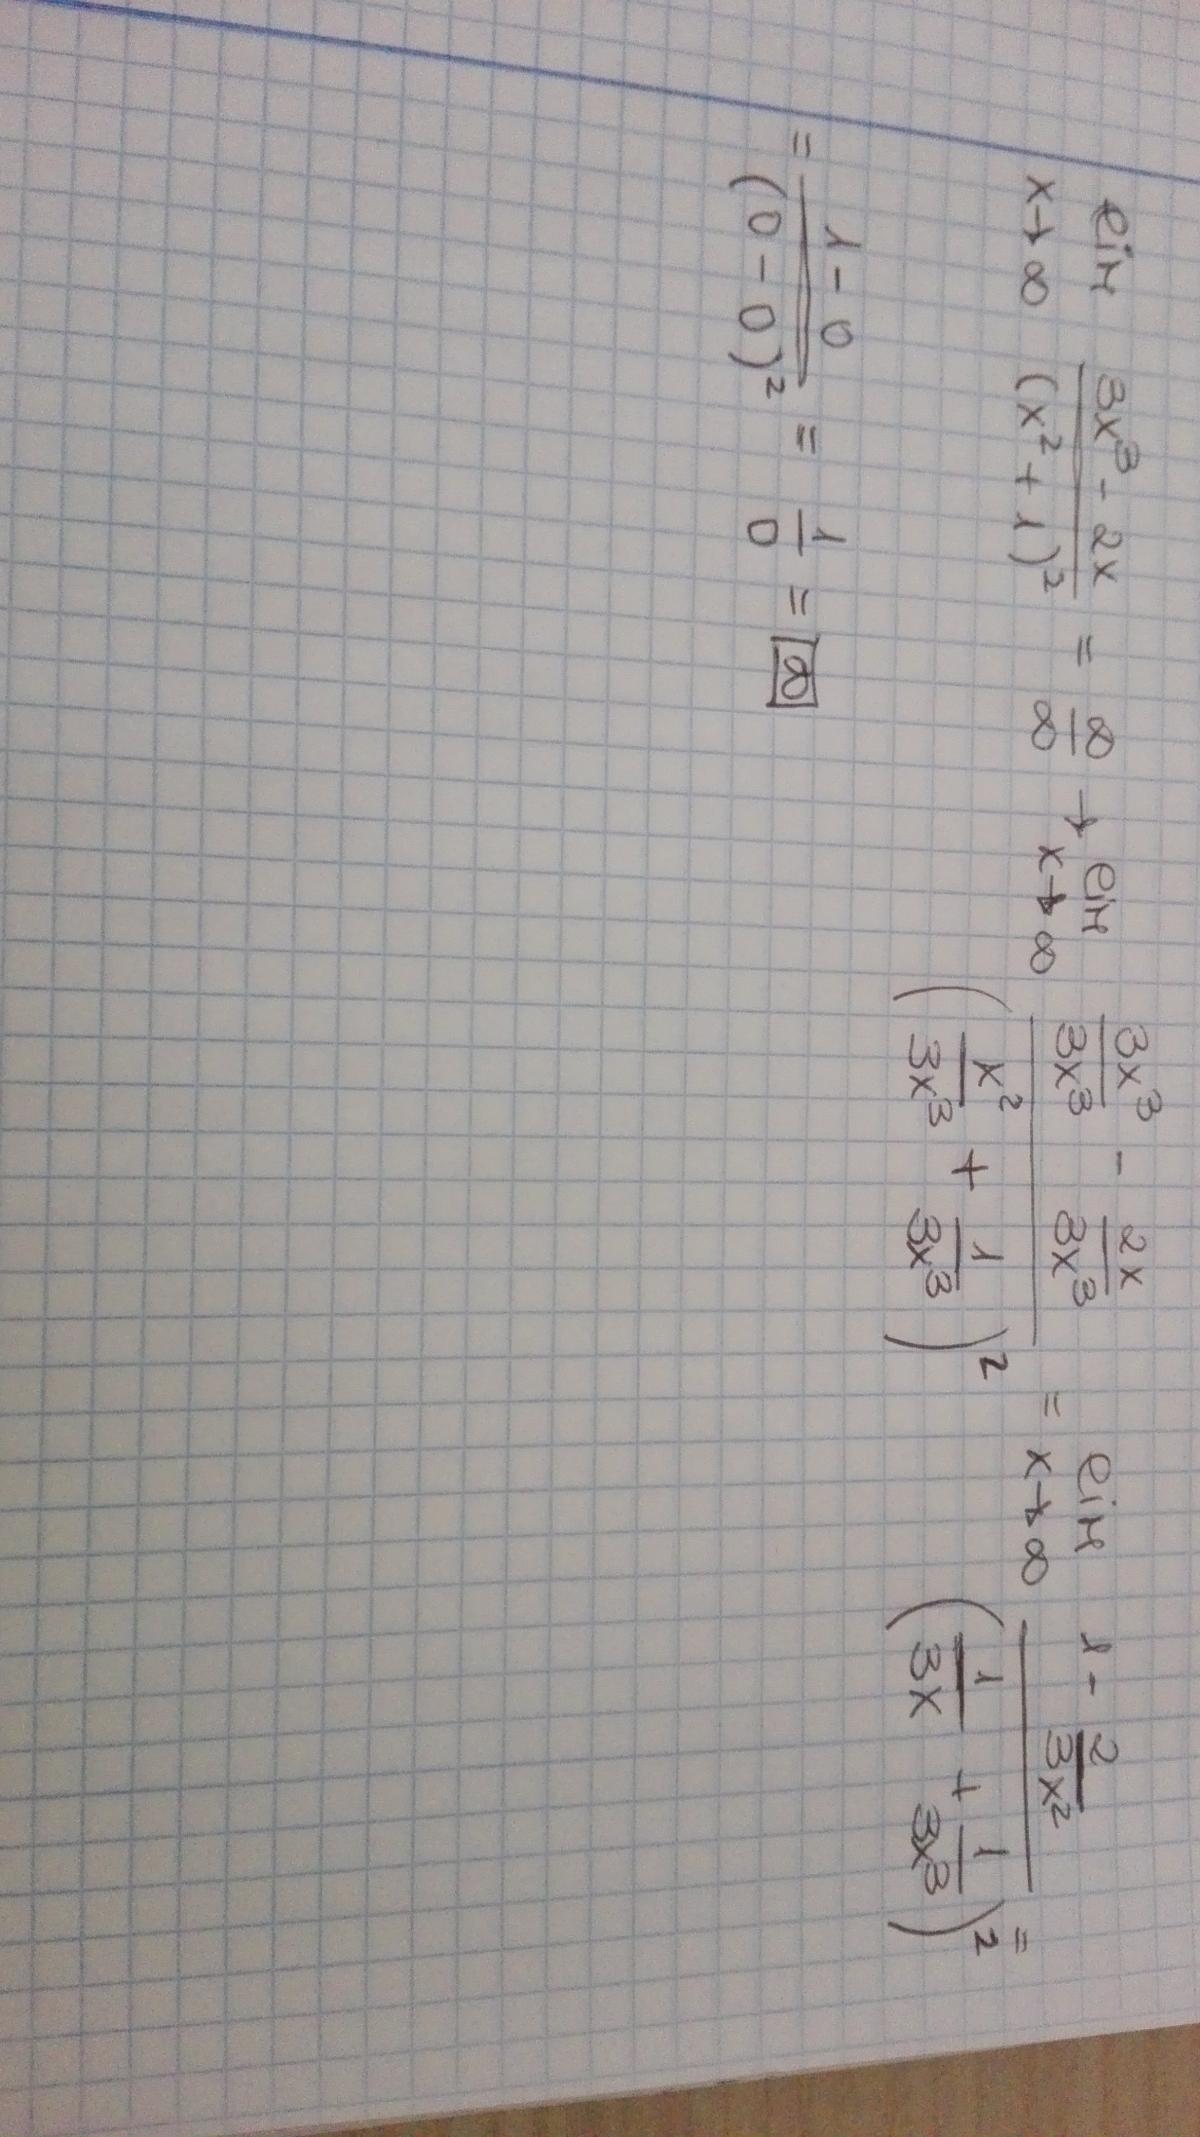 lim x→∞ (3x³ - 2x)/(x² + 1)² = ∞/∞ → lim x→∞ (3x³/3x³ - 2x/3x³)/(x²/3x³ + 1/3x³)² = lim x→∞ (1 - 2/3x²)/(1/3x + 1/3x³)² =
= (1 - 0)/(0 - 0)² = 1/0 = ∞